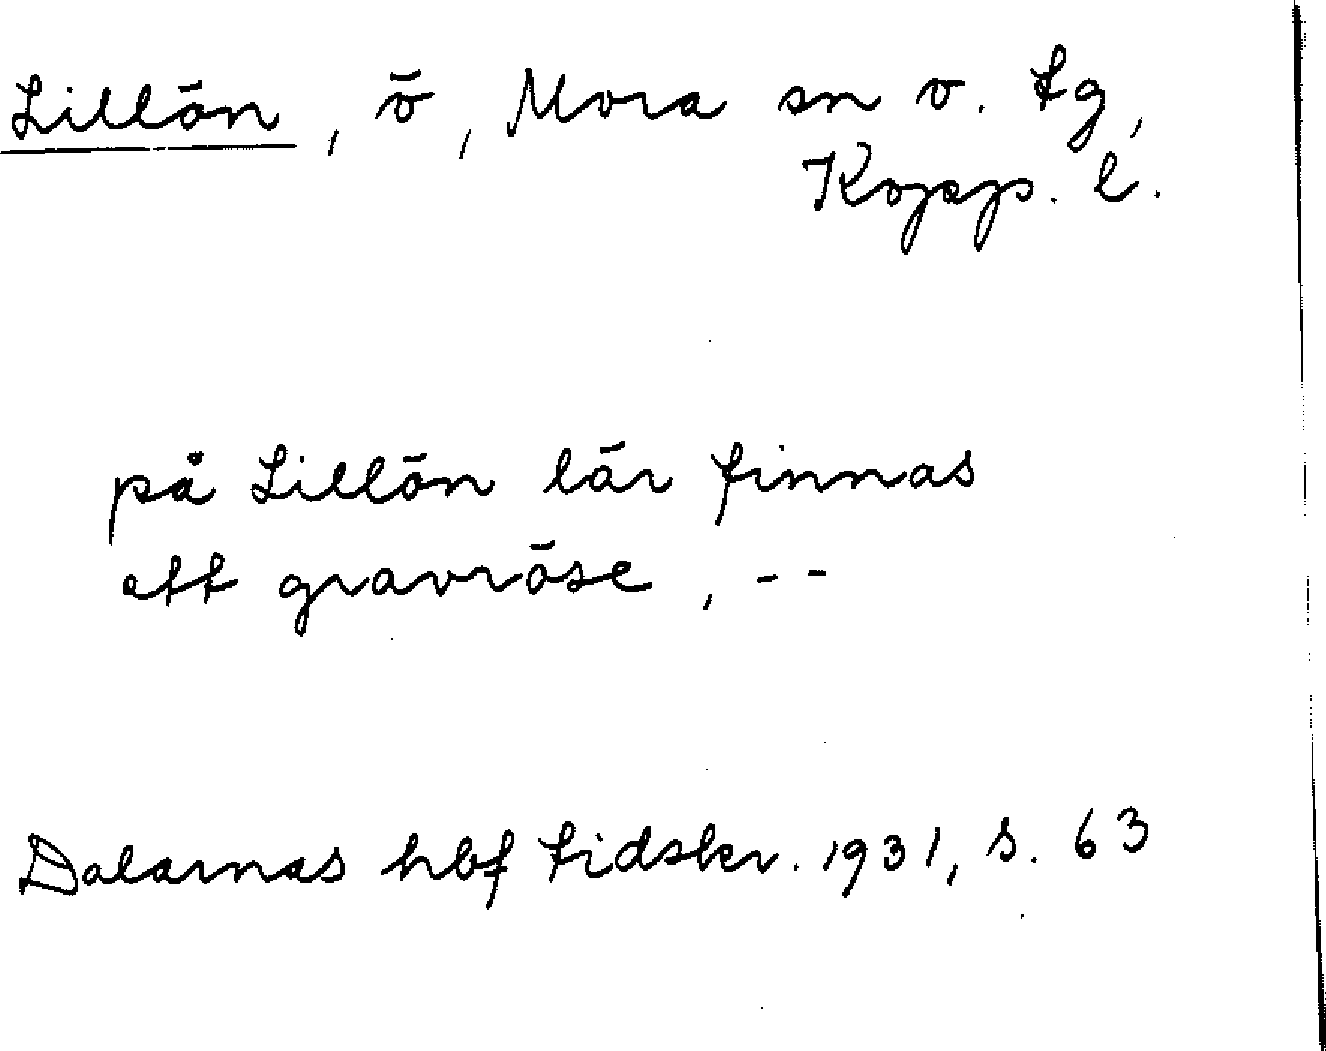 Lillön, ö, Mora sn o. tg,
Kopp. l.
på Lillön lär finnas
ett gravröse, --
Dalarnas hbf tidskr. 1931, s. 63